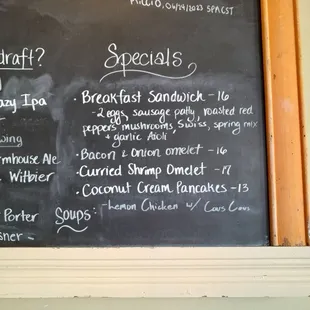 04/29/2023
draft?
Specials
azy Ipa
· Breakfast Sandwich - 16
- 2 eggs, sausage patty, roasted red
peppers, mushrooms, Swiss, spring mix
+ garlic Aioli
wing
rmhouse Ale
· Bacon & Onion omelet - 16
. Witbier
· Curried Shrimp Omelet - 17
· Coconut Cream Pancakes - 13
Porter
Soups:
- Lemon Chicken w/ Cous Cous
sner